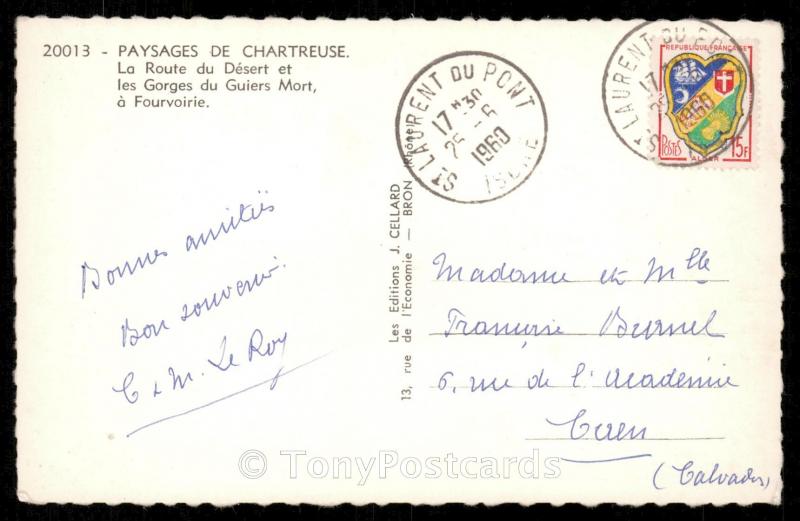 20013 - PAYSAGES DE CHARTREUSE.
La Route du Désert et
les Gorges du Guiers Mort,
à Fourvoirie.
ST LAURENT DU PONT
17H30
25-5
1960
ISERE
REPUBLIQUE FRANÇAISE
POSTES
15F
ALGER
ST LAURENT DU PONT
17
1960
Bonnes amitiés
Bon souvenir.
C & M. Le Roy
Les Editions J. CELLARD
13, rue de l'Economie — BRON (Rhône)
Madame et Mlle
Francine Burnel
6, rue de l'Academie
Caen
(Calvados)
© TonyPostcards